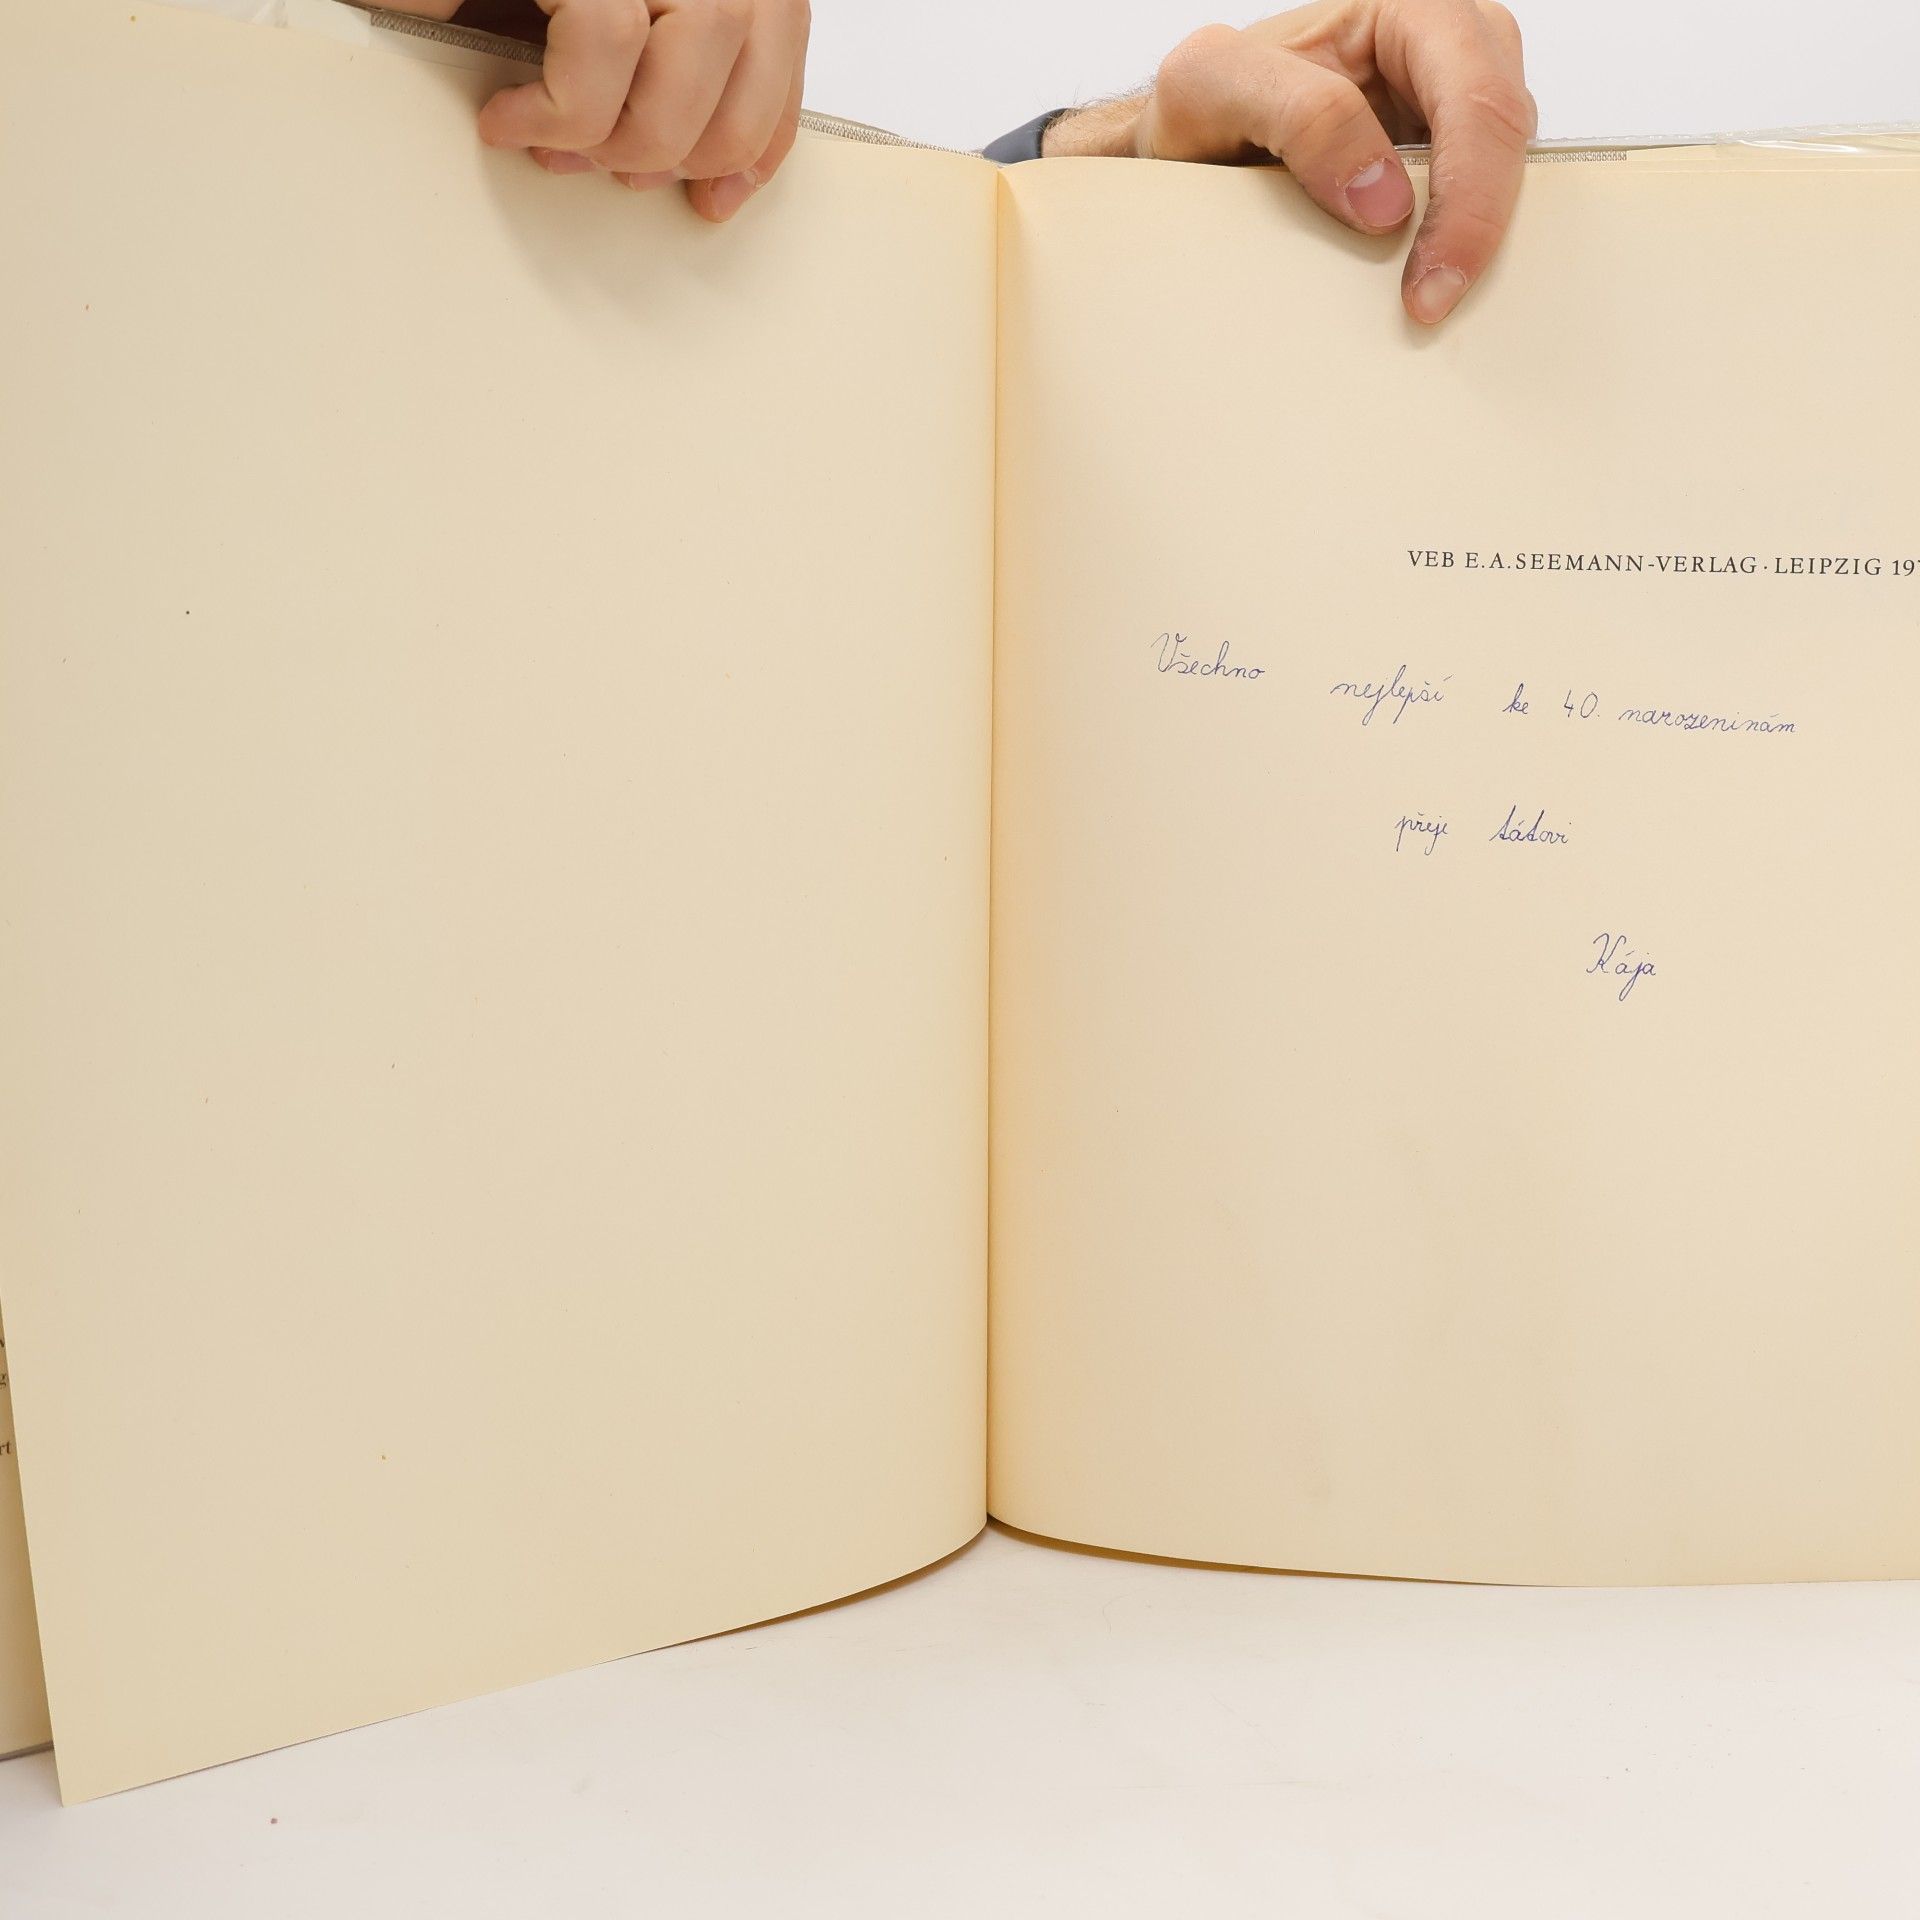 VEB E.A.SEEMANN-VERLAG · LEIPZIG 19
Všechno nejlepší ke 40. narozeninám
přeje tátovi
Kája